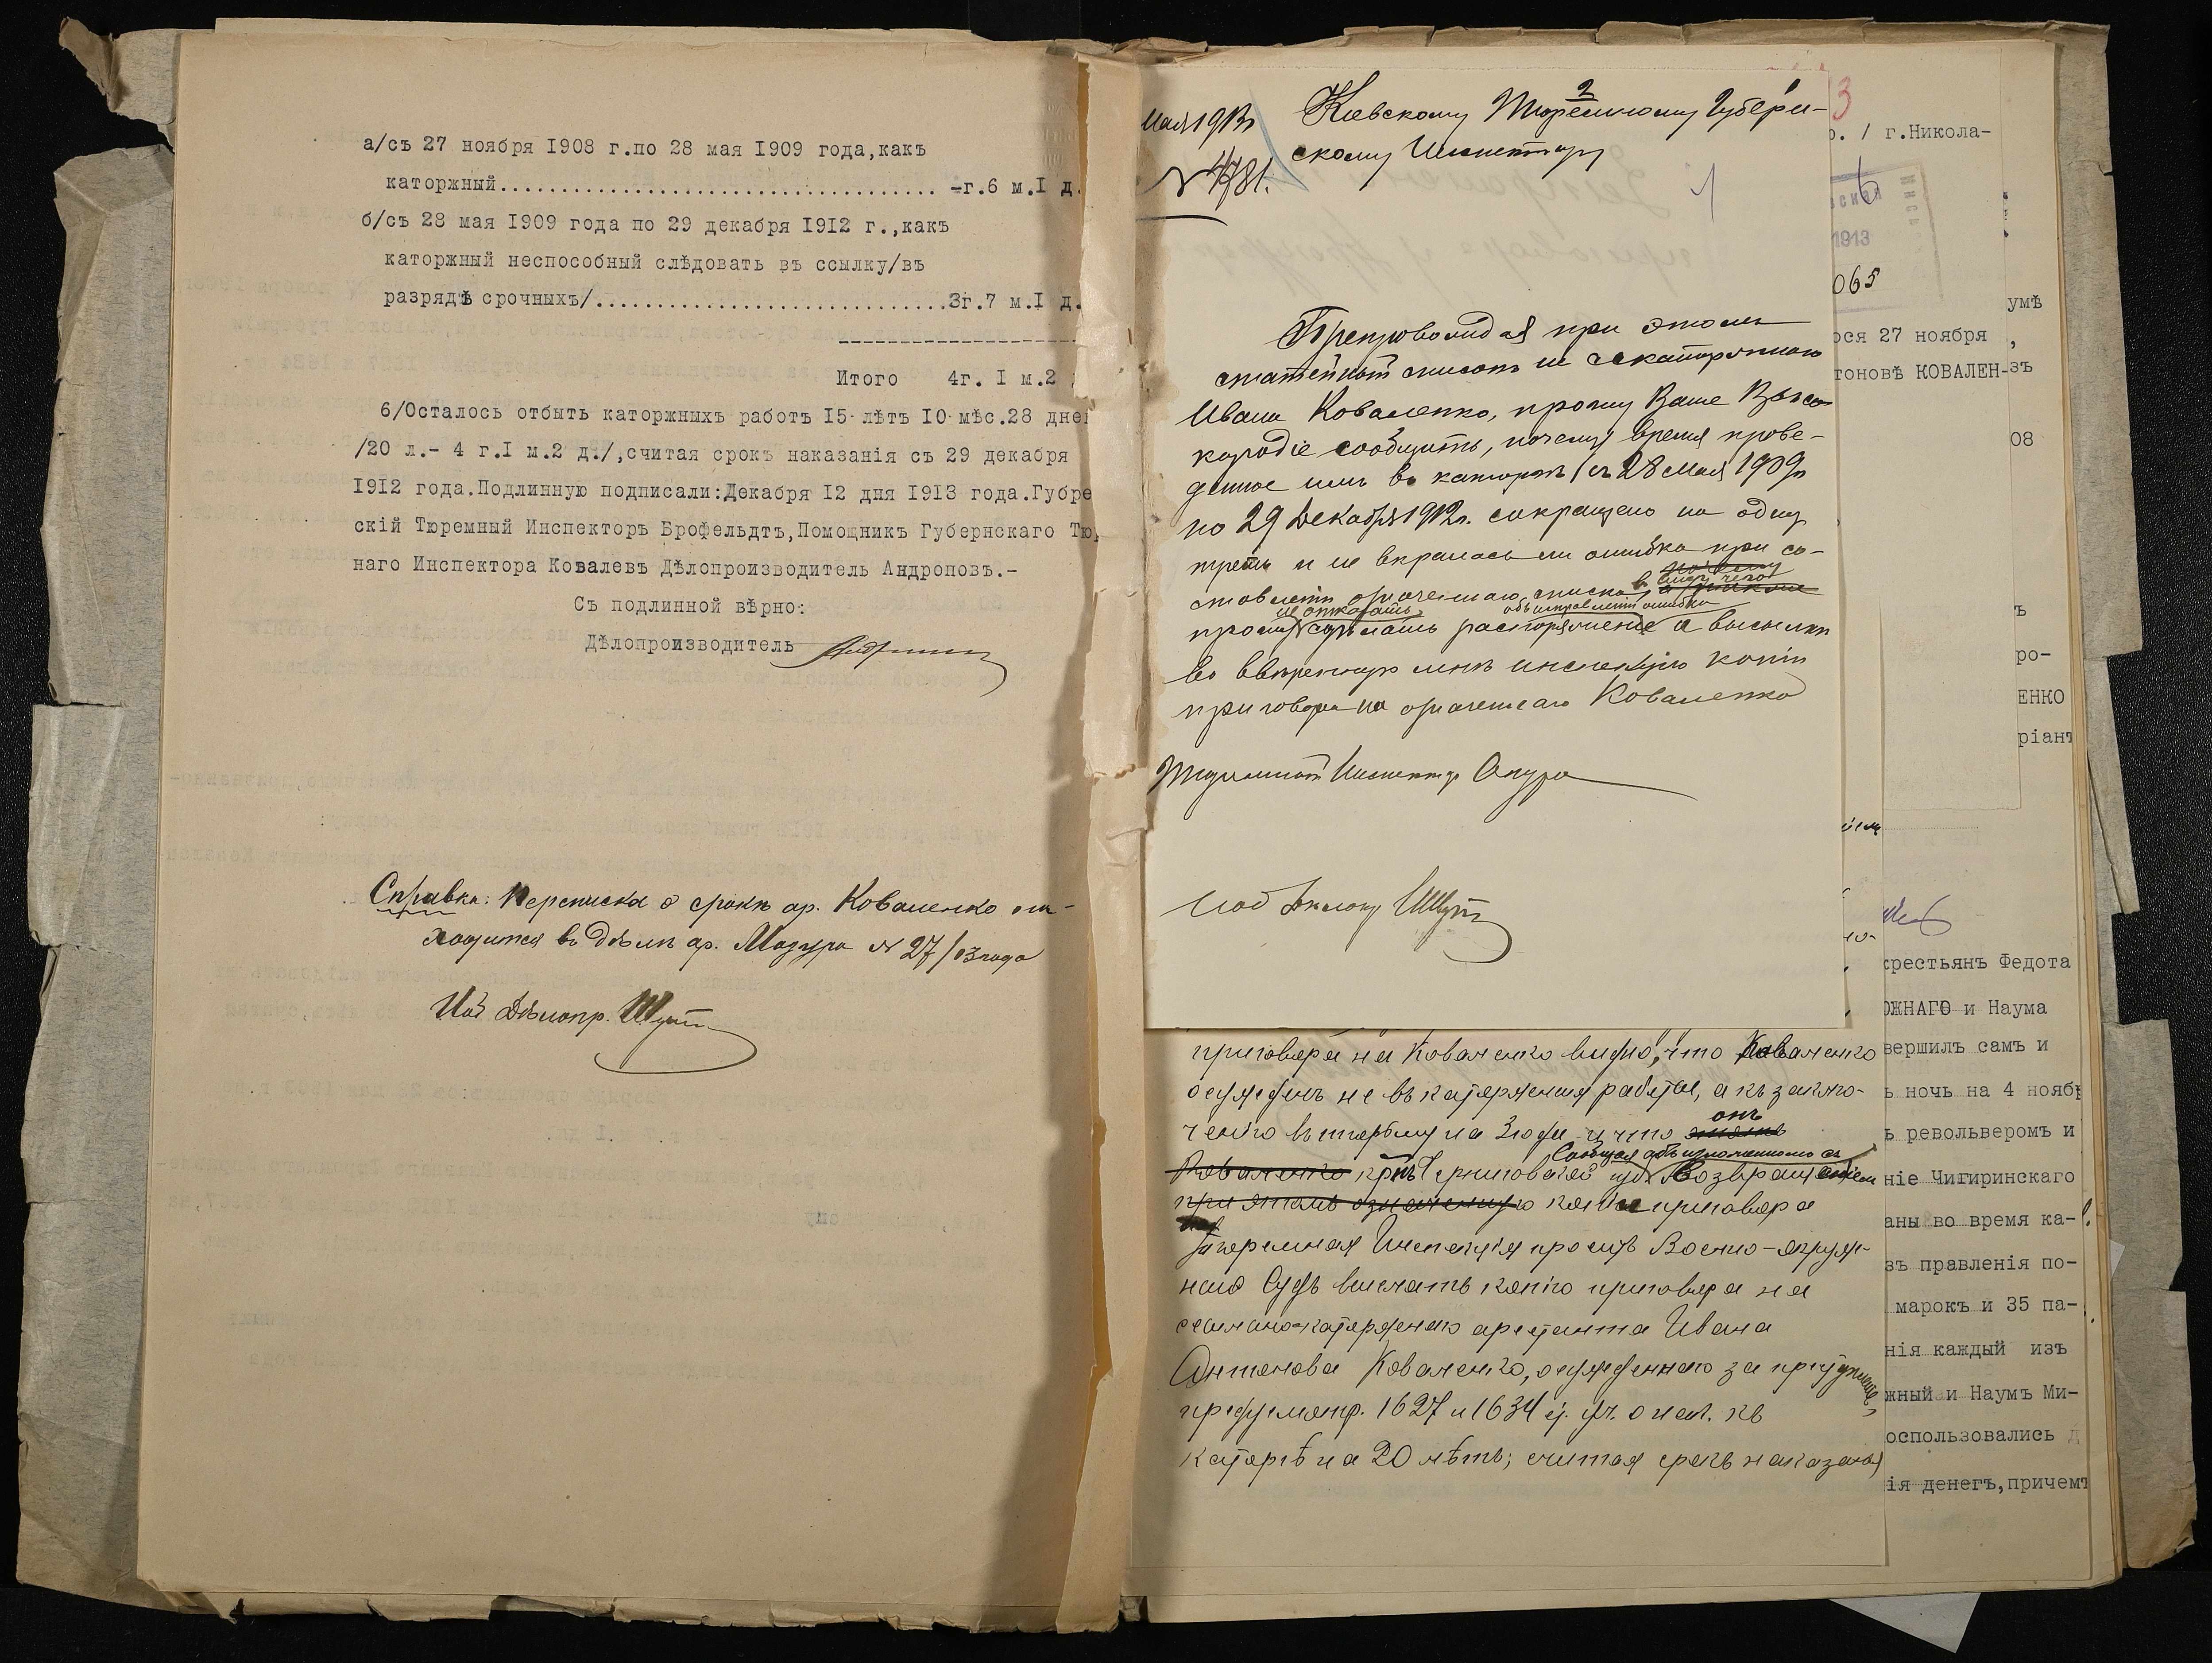 а/съ 27 ноября 1908 г.по 28 мая 1909 года,какъ
каторжный................................... -г.6 м.I д.
б/съ 28 мая 1909 года по 29 декабря 1912 г.,какъ
каторжный неспособный слѣдовать въ ссылку/въ
разрядѣ срочныхъ/............................3г.7 м.I д.
Итого 4г. I м.2
6/Осталось отбыть каторжныхъ работъ 15 лѣтъ 10 мѣс.28 дне
/20 л.- 4 г.I м.2 д./,считая срокъ наказанія съ 29 декабря
1912 года.Подлинную подписали:Декабря 12 дня 1913 года.Губре
скій Тюремный Инспекторъ Брофельдтъ,Помощникъ Губернскаго Тю
наго Инспектора Ковалевъ Дѣлопроизводитель Андроповъ.-
Съ подлинной вѣрно:
Дѣлопроизводитель
Справка: Переписка о срокѣ ар. Коваленко на-
ходится въ дѣлѣ ар. Мазура № 27/13 года
Иод Дѣлопр. Шутт
Мая 1913г
№ 4781.
2
Кіевскому Тюремному Губерн-
скому Инспектору
Препровождая при этомъ
статейный списокъ
Ивана Коваленко, прошу Ваше Высо-
кородіе сообщить, почему время прове-
денное имъ въ каторгѣ (съ 28 Мая 1909г
по 29 Декабря 1912г. сокращено на одну
треть и не вкралась ли ошибка при со-
ставленіи означеннаго списка, въ виду чего
не отказать объ исправленіи ошибки
прошу сдѣлать распоряженіе и высылки
во ввѣренную мнѣ инспекцію копіи
приговора на означеннаго Коваленко
Тюремный Инспекторъ
Иод Дѣлопр Шутт
приговора на Коваленко видно, что Коваленко
осужденъ не въ каторжныя работы, а къ заклю-
ченію въ тюрьму на 3 года и что онъ
Сообщая объ изложенномъ съ
Коваленко кр-нъ Черниговской губ. Возвращеніем
при этомъ означенную копіи приговора
Тюремная Инспекція проситъ Военно-окруж-
ной Судъ выслать копію приговора на
ссыльно-каторжнаго арестанта Ивана
Антонова Коваленко, осужденнаго за преступленіе,
предусмотр. 1627 и 1634 ст. ул. о нак. къ
каторгѣ на 20 лѣтъ; считая срокъ наказанія
3
р. / г.Никола-
6
1913
065
ося 27 ноября
тоновѣ КОВАЛЕН-
умѣ
,
зъ
08
ъ
ро-
ЕНКО
ріант
крестьянъ Федота
ОЖНАГО и Наума
вершилъ самъ и
ь ночь на 4 нояб
ъ револьверомъ и
ніе Чигиринскаго
аны во время ка-
зъ правленія по-
марокъ и 35 па-
нія каждый изъ
жный и Наумъ Ми-
оспользовались
ія денегъ,причем